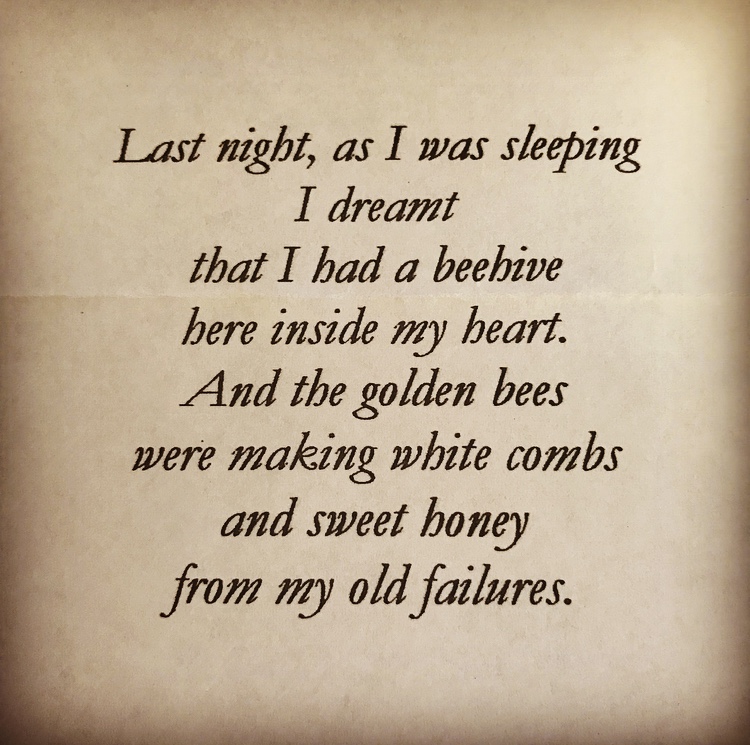 Last night, as I was sleeping
I dreamt
that I had a beehive
here inside my heart.
And the golden bees
were making white combs
and sweet honey
from my old failures.